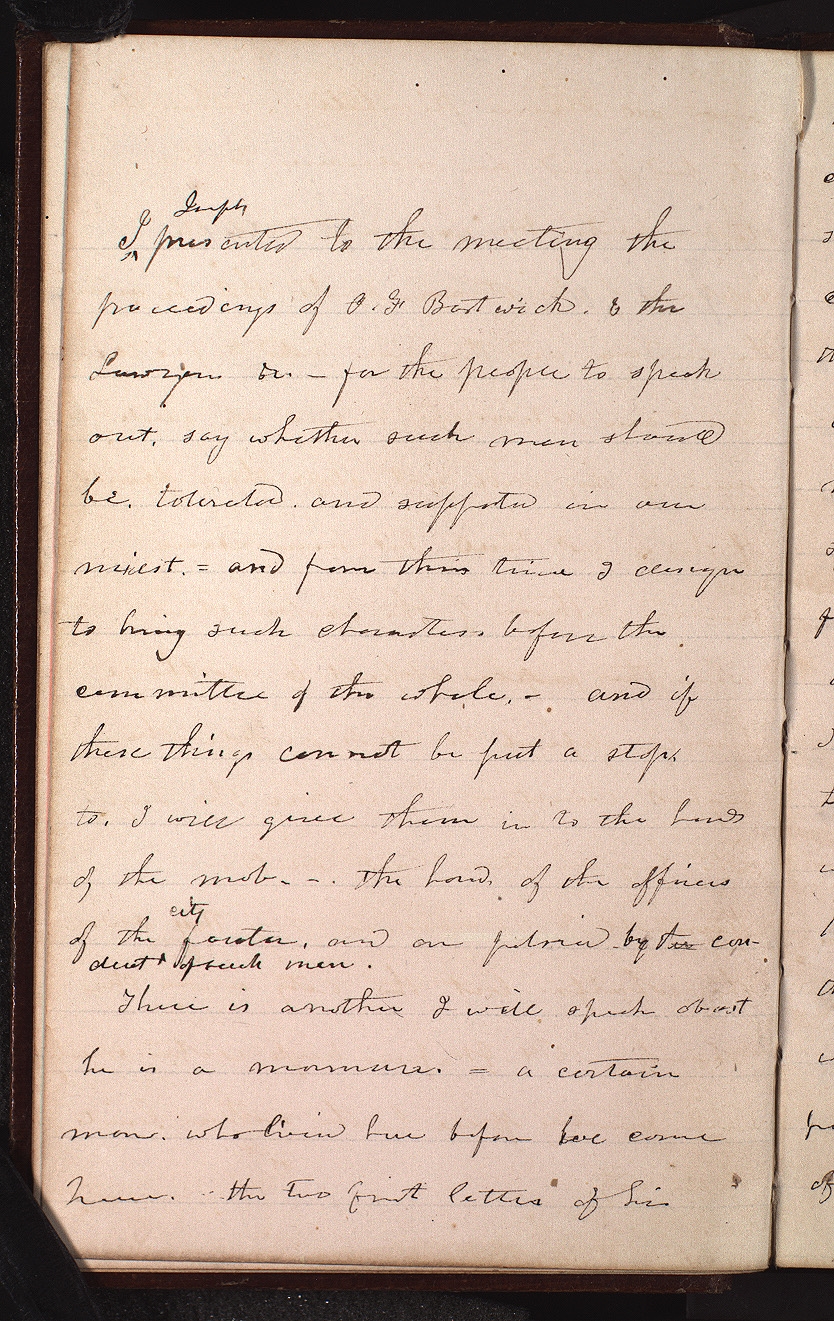 Joseph
I presented to the meeting the
proceedings of O. F. Bostwick. & the
Lawyers &c. – for the people to speak
out. say whether such men should
be. tolerated. and suppotd in our
midst. = and from this time I design
to bring such characters. before the
committee of the whole. – and if
these things cannot be put a stop.
to. I will give them in to the hands
of the mob. – . the hands of the officers
city
of the fauter, and are by the con-
duct of such men.
There is another I will speak about
he is a mormon. = a certain
man. who lived here before we came
here. – the two first letters of his